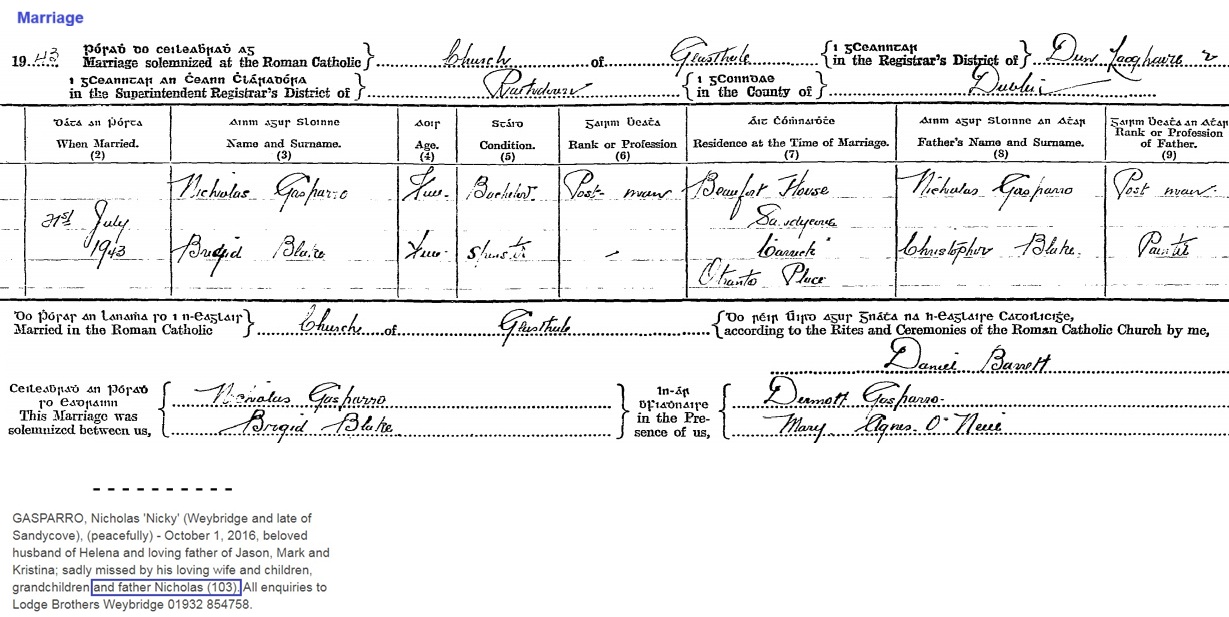 Marriage
19 43 Pósaḋ do ceileaḃraḋ ag Marriage solemnized at the Roman Catholic } Church of Glasthule { i gCeanntar in the Registrar's District of } Dun Laoghaire
i gCeanntar an Ċeann Ċláraḋóra in the Superintendent Registrar's District of } Rathdown { i gConndae in the County of } Dublin
Dáta an Ṗósta When Married. (2)
Ainm agus Sloinne Name and Surname. (3)
Aois Age. (4)
Stáid Condition. (5)
Gairm Ḃeaṫa Rank or Profession (6)
Áit Ċóṁnaiḋṫe Residence at the Time of Marriage. (7)
Ainm agus Sloinne an Aṫar Father's Name and Surname. (8)
Gairm Ḃeaṫa an Aṫar Rank or Profession of Father. (9)
Nicholas Gasparro Full Bachelor Post-man Beaufort House Nicholas Gasparro Post man
21st July 1943
Sandycove
Brigid Blake Full Spinster - "Carrick" Christopher Blake Painter
Otranto Place
Do pósaḋ an lanaṁa so i n-eaglais Married in the Roman Catholic } Church of Glasthule { Do réir Úird agus Gnáta na h-eaglaise Catoilicíġe, according to the Rites and Ceremonies of the Roman Catholic Church by me,
Daniel Barrett
Ceileaḃraḋ an Pósaḋ so eadrainn This Marriage was solemnized between us, { Nicholas Gasparro
Brigid Blake } In-ár ḃfiaḋnaire in the Presence of us, { Dermott Gasparro
Mary Agnes O'Neill
GASPARRO, Nicholas 'Nicky' (Weybridge and late of
Sandycove), (peacefully) - October 1, 2016, beloved
husband of Helena and loving father of Jason, Mark and
Kristina; sadly missed by his loving wife and children,
grandchildren and father Nicholas (103). All enquiries to
Lodge Brothers Weybridge 01932 854758.